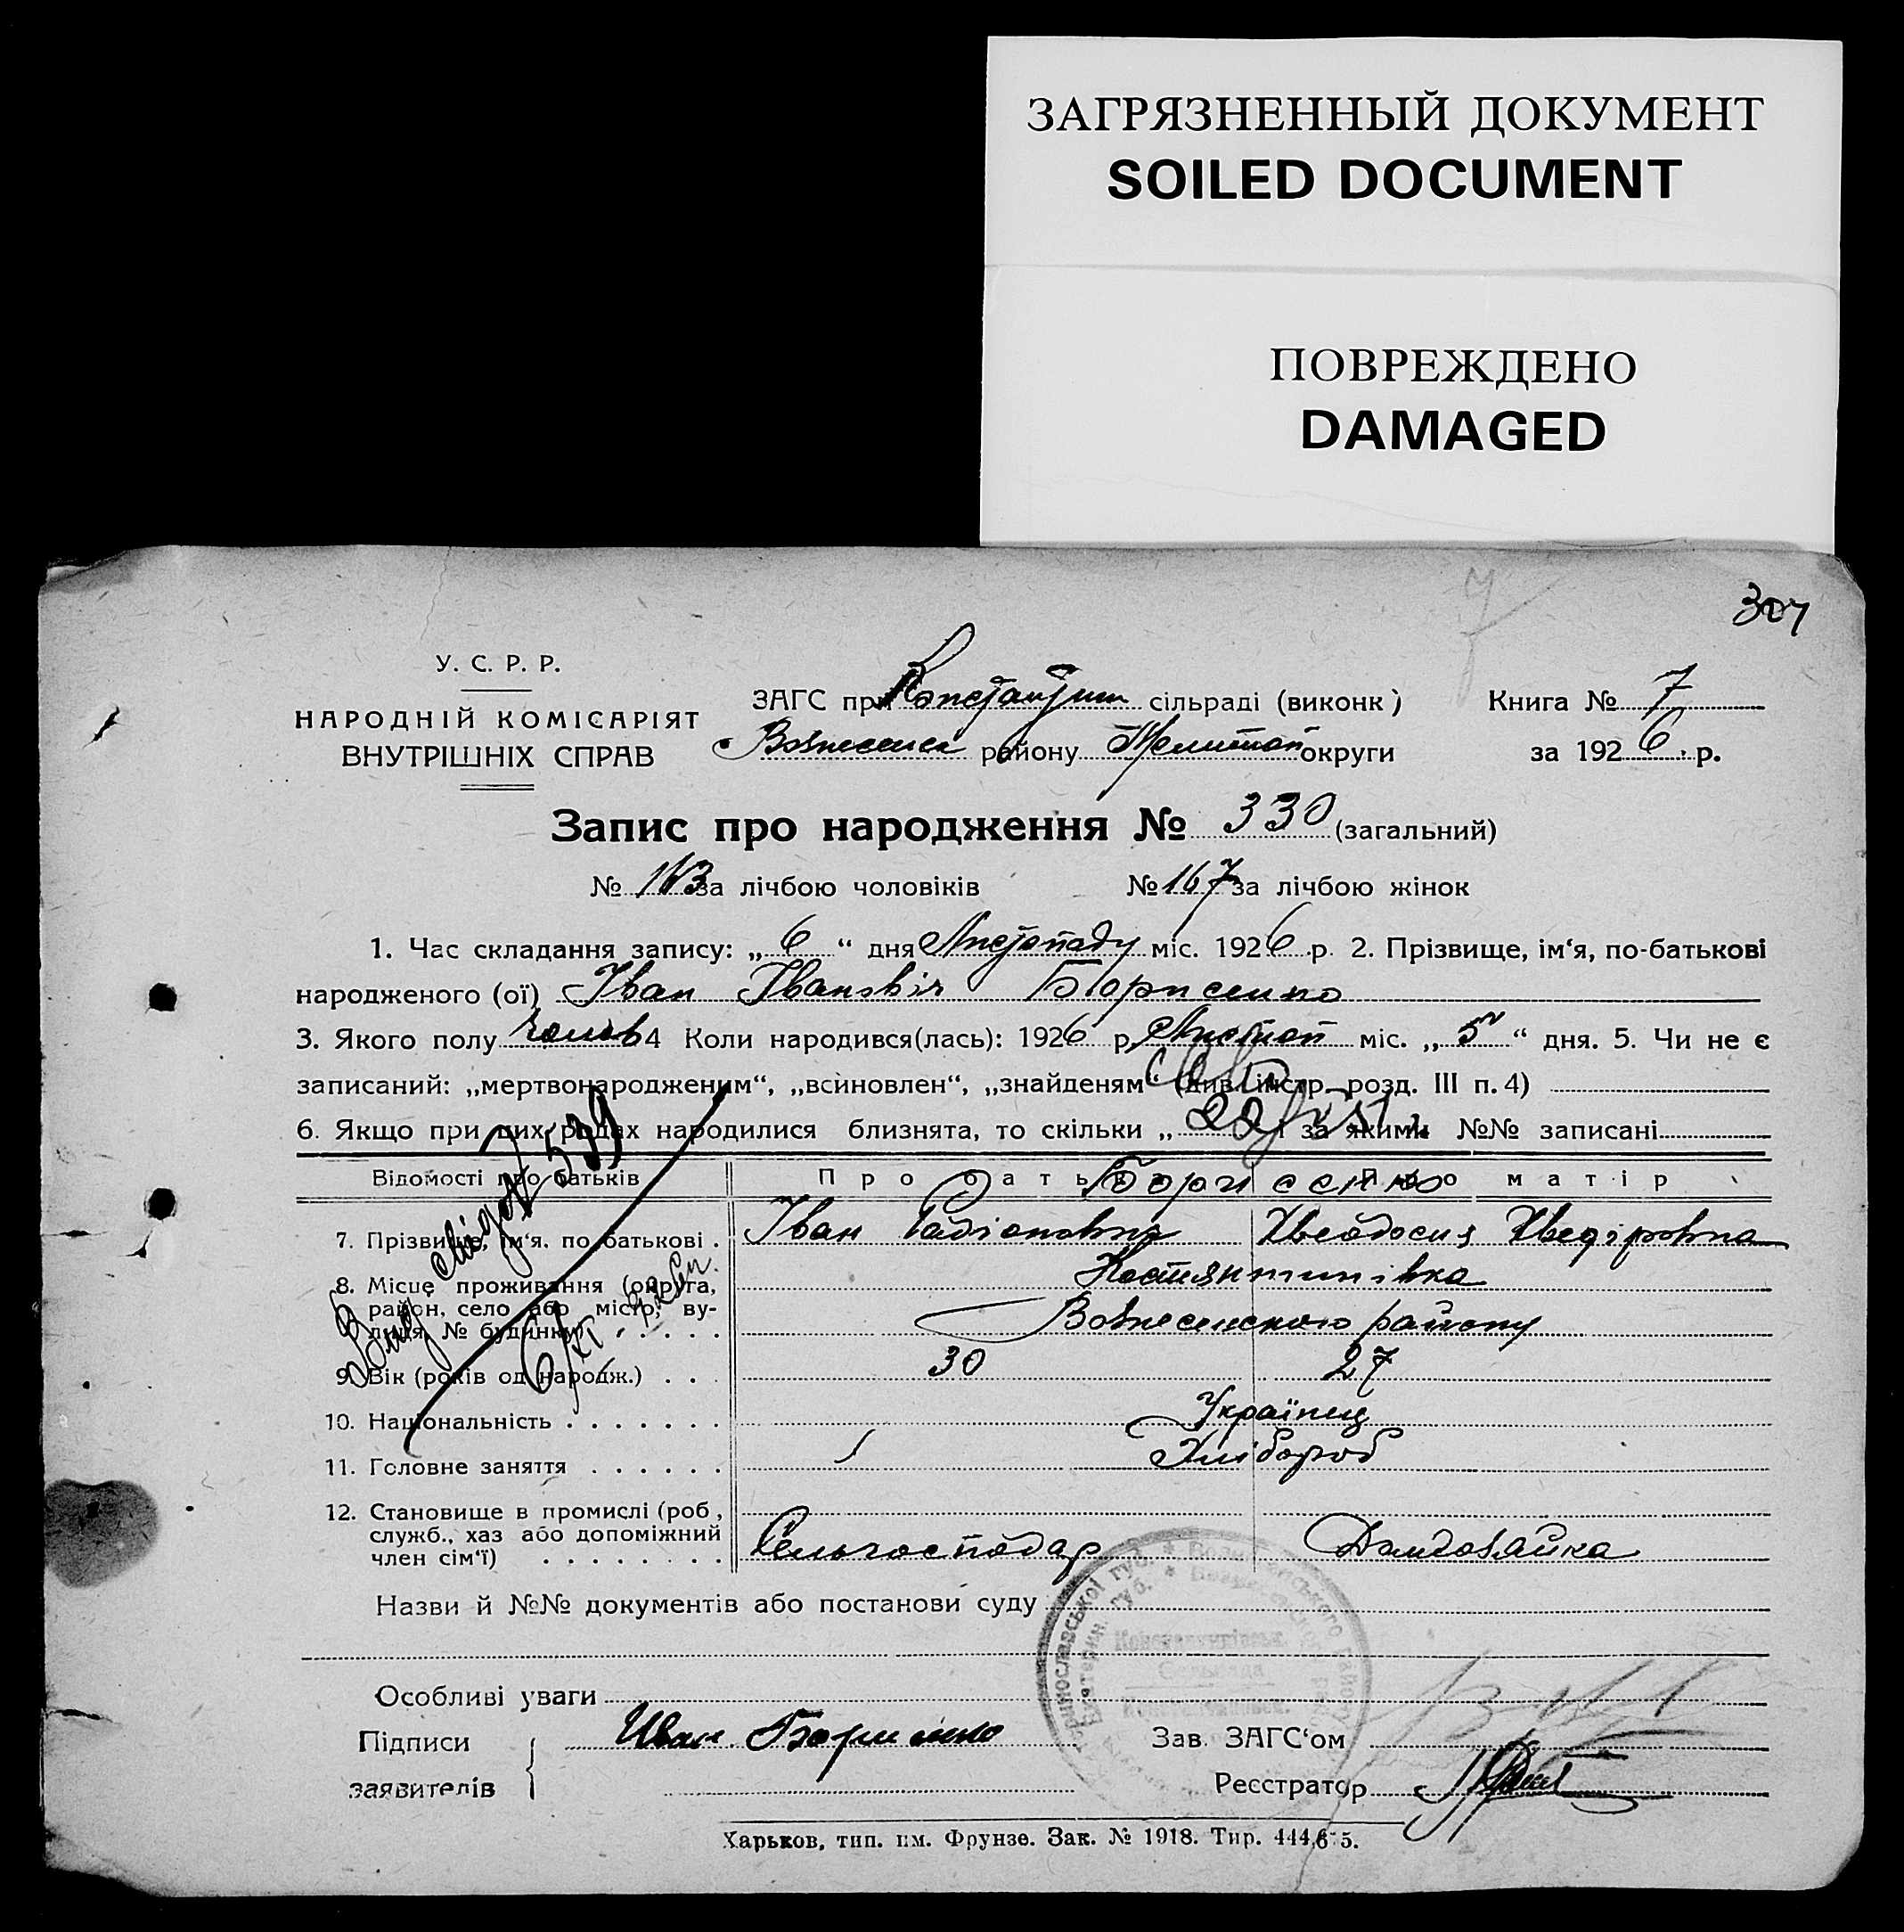 ЗАГРЯЗНЕННЫЙ ДОКУМЕНТ
SOILED DOCUMENT
ПОВРЕЖДЕНО
DAMAGED
307
7
У. С. Р. Р.
НАРОДНІЙ КОМІСАРІЯТ
ВНУТРІШНІХ СПРАВ
ЗАГС при Констянтин сільраді (виконк) Книга № 7
Вознесенск району Мелитоп округи за 1926 р.
Запис про народження № 330 (загальний)
№ 163 за лічбою чоловіків № 167 за лічбою жінок
1. Час складання запису: „6“ дня Листопаду міс. 1926 р. 2. Прізвище, ім‘я, по-батькові
народженого (ої) Іван Івановіч Борисенко
3. Якого полу чолов 4 Коли народився(лась): 1926 р. Листоп міс. „5“ дня. 5. Чи не є
записаний: „мертвонародженим“, „всиновлен“, „знайденям“ (див. інстр. розд. III п. 4)
6. Якщо при цих родах народилися близнята, то скільки „ і за якими №№ записані
Відомості про батьків Про батька Про матір
Борисенко
7. Прізвище, ім‘я. по батькові Іван Радіонович Хведосия Хведіровна
8. Місце проживання (округа, район, село або місто, вулиця, № будинку) Костянтинівка
Вознесенского району
9. Вік (років од народж.) 30 27
10. Національність Українец
11. Головне заняття Хлібороб
12. Становище в промислі (роб, служб., хаз або допоміжний член сім‘ї) Сельгосподар Домозяйка
Вид свідоц № 539
6/XI-
Назви й №№ документів або постанови суду
Особливі уваги
Підписи заявителів Иван Борисенко
Зав. ЗАГС‘ом
Реєстратор
Харьков, тип. им. Фрунзе. Зак. № 1918. Тир. 444,675.